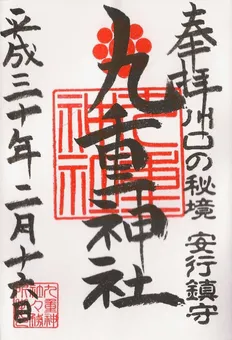 奉拝
川口の秘境 安行鎮守
九重神社
九重神社
平成三十年二月十六日